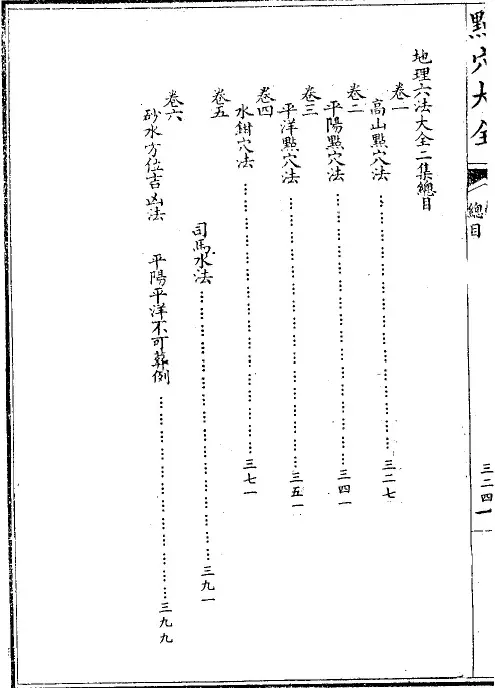 點穴大全
總目
三二四一
地理六法大全二集總目
卷一
高山點穴法 三二七
卷二
平陽點穴法 三四一
卷三
平洋點穴法 三五一
卷四
水鉗穴法 三七一
卷五
司馬水法 三九一
卷六
砂水方位吉凶法 平陽平洋不可葬例 三九九